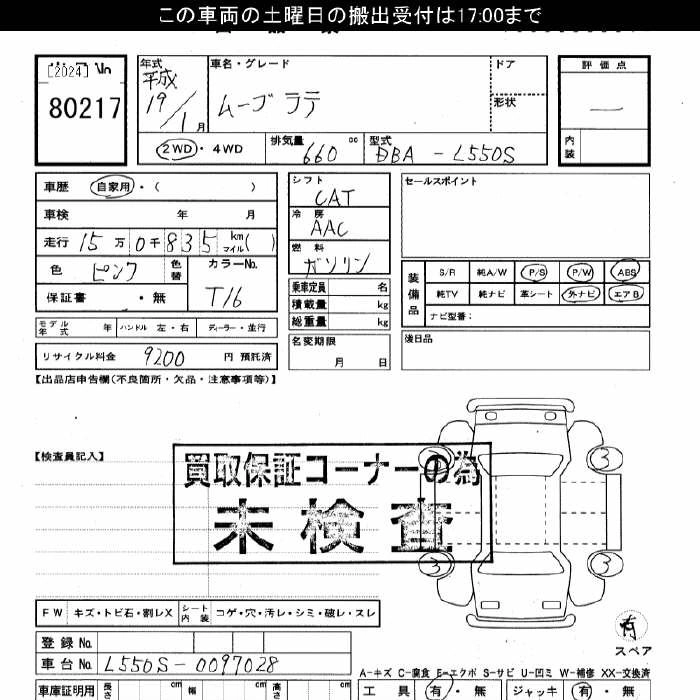 この車両の土曜日の搬出受付は17:00まで
[2024]
80217
年式
平成
19/1月
車名・グレード
ムーヴ ラテ
ドア
形状
評価点
—
内装
2WD・4WD
排気量
660 cc
型式
DBA - L550S
車歴 自家用・( )
車検 年 月
走行 15万0千835 km マイル( )
色 ピンク 色替
カラーNo.
T16
保証書 ・無
シフト
CAT
冷房
AAC
燃料
ガソリン
乗車定員 名
積載量 kg
総重量 kg
セールスポイント
装備品
S/R 純A/W P/S P/W ABS
純TV 純ナビ 革シート 外ナビ エアB
ナビ型番:
モデル年式 年 ハンドル 左・右 ディーラー・並行
名変期限
月 日
後日品
リサイクル料金 9200 円 預託済
【出品店申告欄(不良箇所・欠品・注意事項等)】
【検査員記入】
買取保証コーナーの為
未検査
3 3
3 3
有
スペア
FW キズ・トビ石・割レX シート内装 コゲ・穴・汚レ・シミ・破レ・スレ
登録 No.
車台 No. L550S-0097028
A-キズ C-腐食 E-エクボ S-サビ U-凹ミ W-補修 XX-交換済
車庫証明用 長さ cm 幅 cm 高さ cm
工具 有・無 ジャッキ 有・無